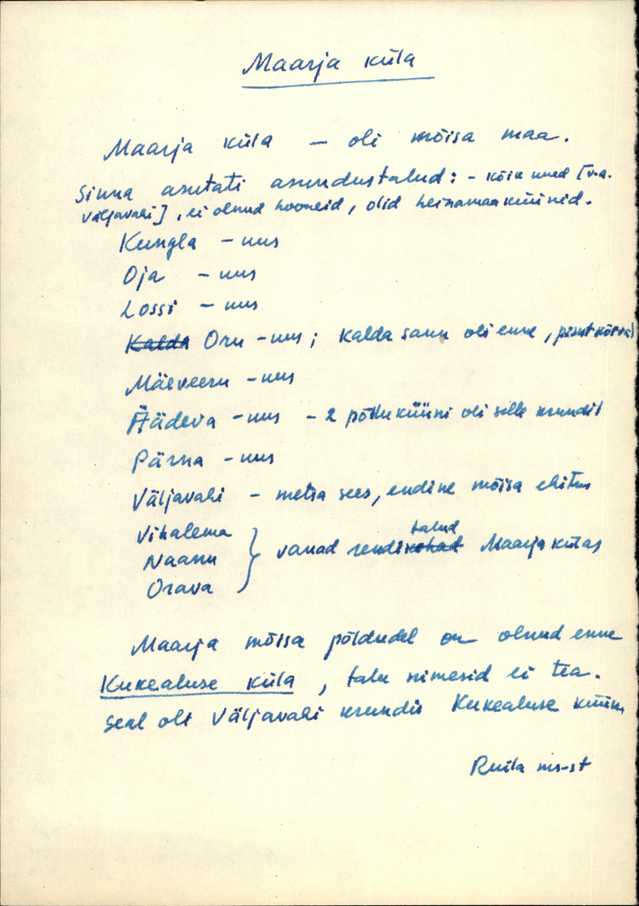 Maarja küla
Maarja küla – oli mõisa maa.
Sinna asutati asundustalud: – kõik uued [v.a.
väljavahi], ei olnud hooneid, olid heinamaaküünid.
Kungla – uus
Oja – uus
Lossi – uus
Kalda Oru – uus; Kalda saun oli enne,
Mäeveeru – uus
Äädeva – uus – 2 põlluküüni oli selle krundil
Pärna – uus
Väljavahi – metsa sees, endine mõisa ehitus
Vihalema
Naanu
Orava
vanad rendikohad talud Maarja külas
Maarja mõisa põldudel on olnud enne
Kukealuse küla, talu nimesid ei tea.
Seal oli Väljavahi krundis Kukealuse küün.
Ruila ms-st